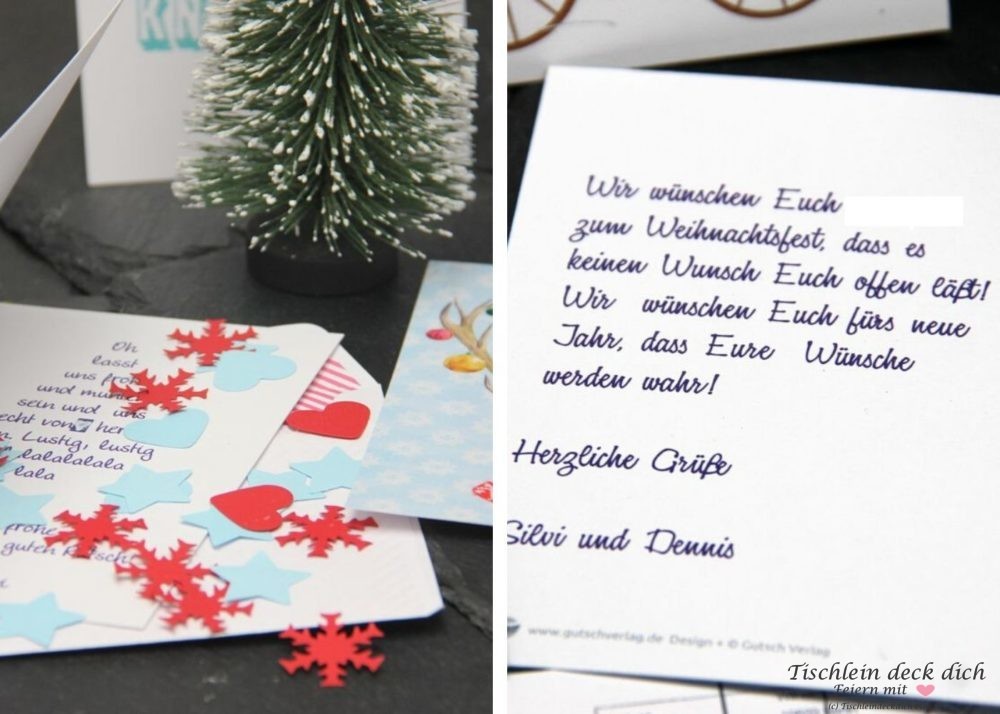 KN
Oh
lasst
uns froh
und munter
sein und uns
echt von her
Lustig, lustig
lalalalala
lala
frohe
guten Rutsch
Wir wünschen Euch
zum Weihnachtsfest, dass es
keinen Wunsch Euch offen läßt!
Wir wünschen Euch fürs neue
Jahr, dass Eure Wünsche
werden wahr!
Herzliche Grüße
Silvi und Dennis
www.gutschverlag.de Design + © Gutsch Verlag
Tischlein deck dich
Feiern mit